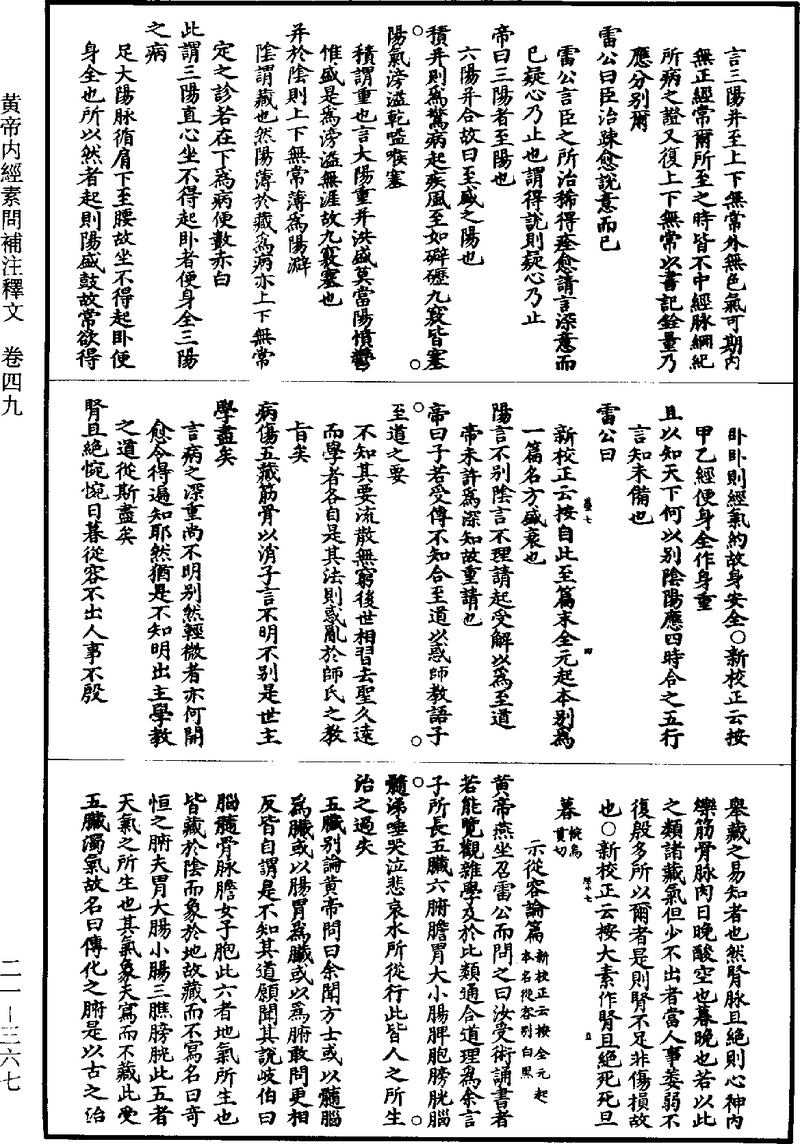 言三陽并至上下無常外無色氣可期內
無正經常爾所至之時皆不中經脉綱紀
所病之證又復上下無常以書記銓量乃
應分別爾
雷公曰臣治踈愈說意而已
雷公言臣之所治稀得痊愈請言深意而
已疑心乃止也謂得說則疑心乃止
帝曰三陽者至陽也
六陽并合故曰至盛之陽也
積并則為驚病起疾風至如礔礰九竅皆塞
陽氣滂溢乾嗌喉塞
積謂重也言大陽重并洪盛莫當陽憤鬱
惟盛是為滂溢無涯故九竅塞也
并於陰則上下無常薄為腸澼
陰謂藏也然陽薄於藏為病亦上下無常
定之診若在下為病便數赤白
此謂三陽直心坐不得起卧者便身全三陽
之病
足大陽脉循肩下至腰故坐不得起卧便
身全也所以然者起則陽盛鼓故常欲得
卧卧則經氣約故身安全○新校正云按
甲乙經便身全作身重
且以知天下何以別陰陽應四時合之五行
言知未備也
雷公曰
新校正云按自此至篇末全元起本別為
一篇名方盛衰也
陽言不別陰言不理請起受解以為至道
帝未許為深知故重請也
帝曰子若受傳不知合至道以惑師教語子
至道之要
不知其要流散無窮後世相習去聖久遠
而學者各自是其法則惑亂於師氏之教
旨矣
病傷五藏筋骨以消子言不明不別是世主
學盡矣
言病之深重尚不明別然輕微者亦何開
愈令得遍知耶然猶是不知明出主學教
之道從斯盡矣
腎且絕惋惋日暮從容不出人事不殷
舉藏之易知者也然腎脉且絕則心神內
爍筋骨脉肉日晚酸空也暮晚也若以此
之類諸藏氣但少不出者當人事萎弱不
復殷多所以爾者是則腎不足非傷損故
也○新校正云按大素作腎且絕死死旦
暮 惋烏貫切
示從容論篇 新校正云按全元起本名從容別白黑
黃帝燕坐召雷公而問之曰汝受術誦書者
若能覽觀雜學及於比類通合道理為余言
子所長五臟六腑膽胃大小腸脾胞膀胱腦
髓涕唾哭泣悲哀水所從行此皆人之所生
治之過失
五臟別論黃帝問曰余聞方士或以髓腦
為臟或以腸胃為臟或以為腑敢問更相
反皆自謂是不知其道願聞其說岐伯曰
腦髓骨脉膽女子胞此六者地氣所生也
皆藏於陰而象於地故藏而不寫名曰奇
恒之腑夫胃大腸小腸三膲膀胱此五者
天氣之所生也其氣象天寫而不藏此受
五臟濁氣故名曰傳化之腑是以古之治
黄帝内經素問補注釋文 卷四九
二一－三六七